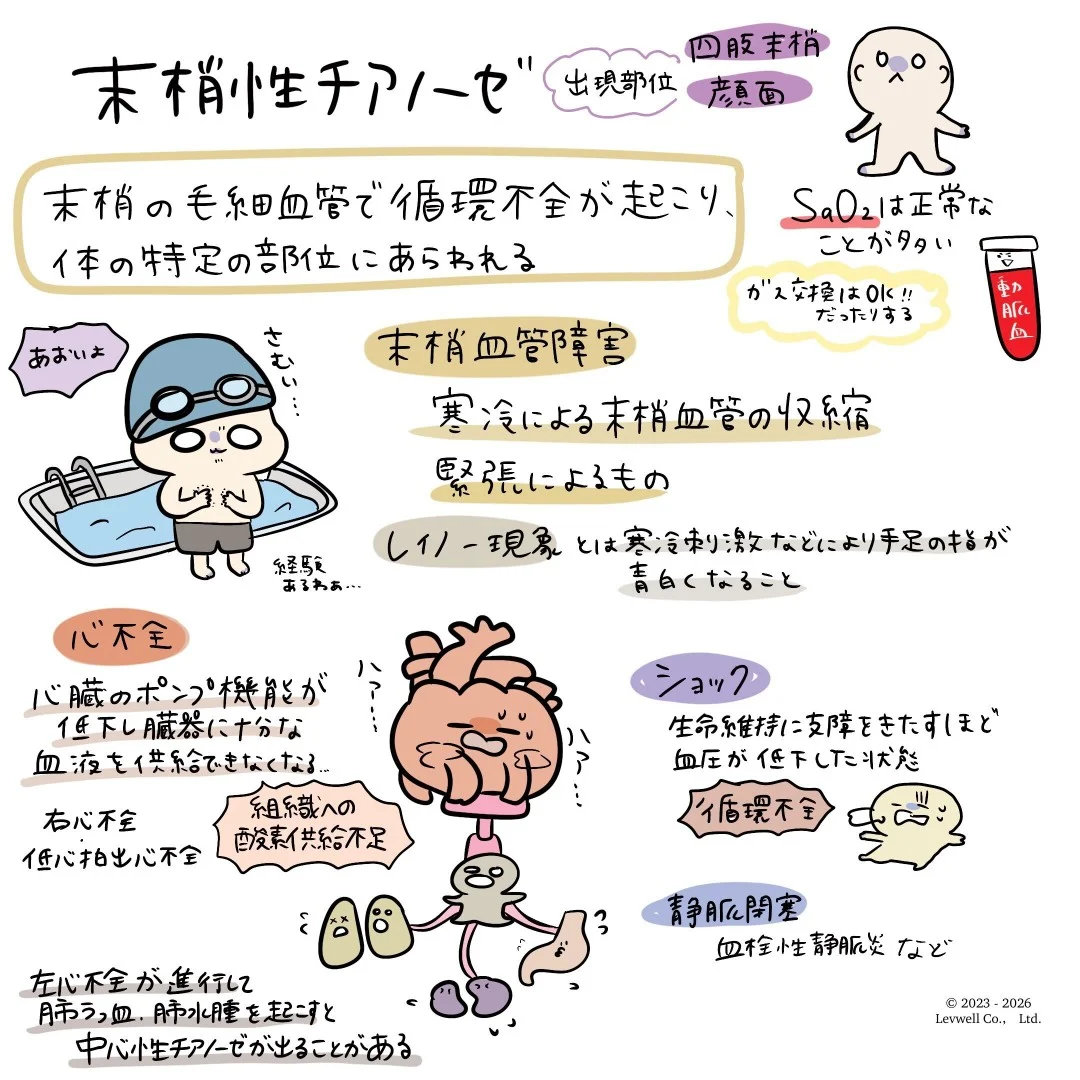 末梢性チアノーゼ
出現部位
四肢末梢
顔面
末梢の毛細血管で循環不全が起こり、
体の特定の部位にあらわれる
SaO2は正常な
ことが多い
ガス交換はOK!!
だったりする
動脈血
あおいよ
さむぃ…
経験
あるわぁ…
末梢血管障害
寒冷による末梢血管の収縮
緊張によるもの
レイノー現象とは寒冷刺激などにより手足の指が
青白くなること
心不全
心臓のポンプ機能が
低下し臓器に十分な
血液を供給できなくなる…
右心不全
低心拍出心不全
組織への
酸素供給不足
ハァー…
ハァ…
左心不全が進行して
肺うっ血、肺水腫を起こすと
中心性チアノーゼが出ることがある
ショック
生命維持に支障をきたすほど
血圧が低下した状態
循環不全
静脈閉塞
血栓性静脈炎など
© 2023 - 2026
Levwell Co., Ltd.